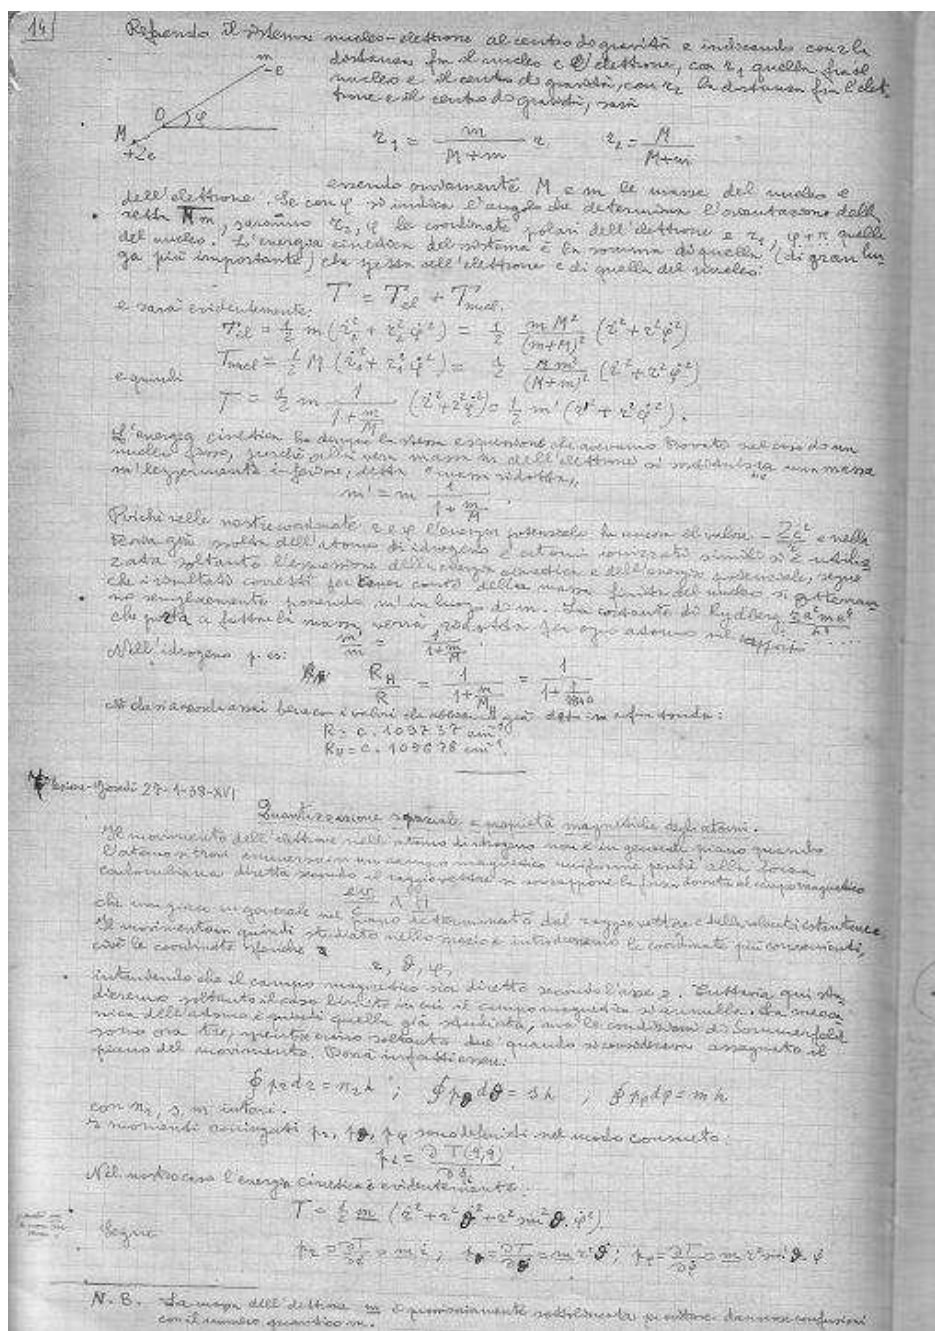 14
Riferendo il sistema nucleo-elettrone al centro di gravità e indicando con r la
distanza fra il nucleo e l'elettrone, con r₁ quella fra il
nucleo e il centro di gravità, con r₂ la distanza fra l'elet-
trone e il centro di gravità, sarà
m
-e
O φ
M
+Ze
r₁ = m/(M+m) r, r₂ = M/(M+m)
essendo ovviamente M e m le masse del nucleo e
dell'elettrone. Se con φ si indica l'angolo che determina l'orientazione della
retta Mm, saranno r₂, φ le coordinate polari dell'elettrone e r₁, φ+π quelle
del nucleo. L'energia cinetica del sistema è la somma di quella (di gran lun-
ga più importante) che spetta all'elettrone e di quella del nucleo:
T = T_el + T_nucl.
e sarà evidentemente:
T_el = 1/2 m (ṙ₂² + r₂² φ̇²) = 1/2 mM²/(m+M)² (ṙ² + r² φ̇²)
T_nucl = 1/2 M (ṙ₁² + r₁² φ̇²) = 1/2 Mm²/(M+m)² (ṙ² + r² φ̇²)
e quindi
T = 1/2 m 1/(1+m/M) (ṙ² + r² φ̇²) = 1/2 m' (ṙ² + r² φ̇²).
L'energia cinetica ha dunque la stessa espressione che avevamo trovato nel caso di un
nucleo fisso, purché alla vera massa m dell'elettrone si sostituisca una massa
m' leggermente inferiore, detta "massa ridotta"
m' = m 1/(1+m/M).
Poiché nelle nostre coordinate r e φ l'energia potenziale ha ancora il valore - Ze²/r e nella
già svolta dell'atomo di idrogeno e atomi ionizzati simili si è utiliz-
zata soltanto l'espressione della energia cinetica e dell'energia potenziale, segue
che i risultati corretti per tener conto della massa finita del nucleo si otterran-
no semplicemente ponendo m' in luogo di m. La costante di Rydberg
che porta a fattore la massa, verrà ridotta per ogni atomo nel rapporto
m'/m = 1/(1+m/M).
Nell'idrogeno p. es:
R_H/R = 1/(1+m/M_H) = 1/(1+1/1840)
che si accorda assai bene con i valori che abbiamo già dato a suo tempo:
R = c. 109737 cm⁻¹
R_H = c. 109678 cm⁻¹.
Lezione - Giovedì 27-1-38-XVI
Quantizzazione spaziale e proprietà magnetiche degli atomi.
Il movimento dell'elettrone nell'atomo di idrogeno non è in generale piano quando
l'atomo si trovi immerso in un campo magnetico uniforme perché alla forza
coulombiana diretta secondo il raggio vettore si sovrappone la forza dovuta al campo magnetico
ev/c ∧ H
che non giace in generale nel piano determinato dal raggio vettore e dalla velocità istantanea.
Il movimento va quindi studiato nello spazio e introdurremo le coordinate più convenienti,
cioè le coordinate sferiche
r, ϑ, φ,
intendendo che il campo magnetico sia diretto secondo l'asse z. Tuttavia qui stu-
dieremo soltanto il caso limite in cui il campo magnetico si annulla. La mecca-
nica dell'atomo è quindi quella già studiata, ma le condizioni di Sommerfeld
sono ora tre, mentre erano soltanto due quando si considerava assegnato il
piano del movimento. Dovrà infatti essere:
∮ p_r dr = n_r h ; ∮ p_ϑ dϑ = s h ; ∮ p_φ dφ = m h
con n_r, s, m interi.
I momenti coniugati p_r, p_ϑ, p_φ sono definiti nel modo consueto:
p_i = ∂T(q, q̇)/∂q̇_i
Nel nostro caso l'energia cinetica è evidentemente:
T = 1/2 m (ṙ² + r² ϑ̇² + r² sin² ϑ. φ̇²)
Segue
p_r = ∂T/∂ṙ = m ṙ ; p_ϑ = ∂T/∂ϑ̇ = m r² ϑ̇ ; p_φ = ∂T/∂φ̇ = m r² sin² ϑ. φ̇
N.B. La massa dell'elettrone m è provvisoriamente sottolineata per evitare confusioni
con il numero quantico m.